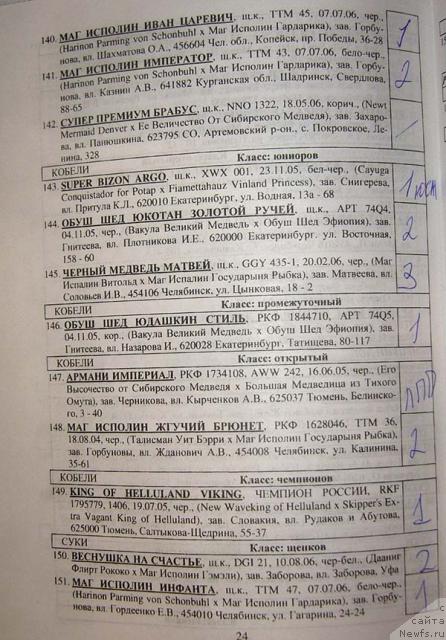 140. МАГ ИСПОЛИН ИВАН ЦАРЕВИЧ, щ.к., ТТМ 45, 07.07.06, чер.,
(Harinon Parming von Schonbuhl x Маг Исполин Гардарика), зав. Горбу-
нова, вл. Шахматова О.А., 456604 Чел. обл., Копейск, пр. Победы, 36-28
141. МАГ ИСПОЛИН ИМПЕРАТОР, щ.к., ТТМ 43, 07.07.06, бело-чер.,
(Harinon Parming von Schonbuhl x Маг Исполин Гардарика), зав. Горбу-
нова, вл. Казнин А.В., 641882 Курганская обл., Шадринск, Свердлова,
88-65
142. СУПЕР ПРЕМИУМ БРАБУС, щ.к., NNO 1322, 18.05.06, корич., (Newt
Mermaid Denver x Ее Величество От Сибирского Медведя), зав. Захаро-
ва, вл. Панюшкина, 623795 СО, Артемовский р-он., с. Покровское, Ле-
нина, 328
КОБЕЛИ Класс: юниоров
143. SUPER BIZON ARGO, щ.к., XWX 001, 23.11.05, бел-чер., (Cayuga
Conquistador for Potap x Fiamettahauz Vinland Princess), зав. Снигерева,
вл. Притула К.Л., 620010 Екатеринбург, ул. Водная, 13а - 68
144. ОБУШ ШЕД ЮКОТАН ЗОЛОТОЙ РУЧЕЙ, щ.к., АРТ 74Q4,
04.11.05, чер., (Вакула Великий Медведь х Обуш Шед Эфиопия), зав.
Гнитеева, вл. Плотникова И.Е., 620000 Екатеринбург, ул. Восточная,
158 - 60
145. ЧЕРНЫЙ МЕДВЕДЬ МАТВЕЙ, щ.к., GGY 435-1, 20.02.06, чер., (Маг
Испалин Витольд х Маг Исполин Государыня Рыбка), зав. Матвеева, вл.
Соловьев И.В., 454106 Челябинск, ул. Цынковая, 18 - 2
КОБЕЛИ Класс: промежуточный
146. ОБУШ ШЕД ЮДАШКИН СТИЛЬ, РКФ 1844710, АРТ 74Q5,
04.11.05, кор., (Вакула Великий Медведь х Обуш Шед Эфиопия), зав.
Гнитеева, вл. Назарова И., 620028 Екатеринбург, Татищева, 80-117
КОБЕЛИ Класс: открытый
147. АРМАНИ ИМПЕРИАЛ, РКФ 1734108, AWW 242, 16.06.05, чер., (Его
Высочество от Сибирского Медведя х Большая Медведица из Тихого
Омута), зав. Черникова, вл. Кырченков А.В., 625037 Тюмень, Белинско-
го, 3 - 40
148. МАГ ИСПОЛИН ЖГУЧИЙ БРЮНЕТ, РКФ 1628046, ТТМ 36,
18.08.04, чер., (Талисман Уит Бэрри х Маг Исполин Государыня Рыбка),
зав. Горбуновы, вл. Жданович А.В., 454008 Челябинск, ул. Калинина,
35-61
КОБЕЛИ Класс: чемпионов
149. KING OF HELLULAND VIKING, ЧЕМПИОН РОССИИ, RKF
1795779, 1406, 19.07.05, чер., (New Waveking of Helluland x Skipper's Ex-
tra Vagant King of Helluland), зав. Словакия, вл. Рудаков и Абутова,
625000 Тюмень, Салтыкова-Щедрина, 55-37
СУКИ Класс: щенков
150. ВЕСНУШКА НА СЧАСТЬЕ, щ.к., DGI 21, 10.08.06, чер-бел., (Дааниг
Флирт Рококо х Маг Исполин Гэмэли), зав. Заборова, вл. Заборова, Уфа
151. МАГ ИСПОЛИН ИНФАНТА, щ.к., ТТМ 47, 07.07.06, бело-чер.,
(Harinon Parming von Schonbuhl x Маг Исполин Гардарика), зав. Горбу-
нова, вл. Гордеенко Е.В., 454010 Челябинск, ул. Гагарина, 24-24
24
1
2
1 юст
2
3
1
ЛПП
2
1
2
1
сайта
Newfs.ru